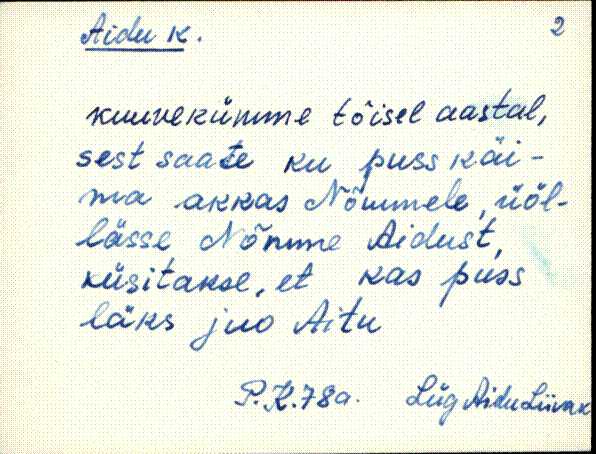 Aidu K.
2
kuuvekümme tõisel aastal,
sest saate ku puss käi-
ma akkas Nõmmele, üöl-
lässe Nõmme Aidust,
küsitakse, et kas puss
läks juo Aitu
P.K.78a. Lüg Aidu Liivak